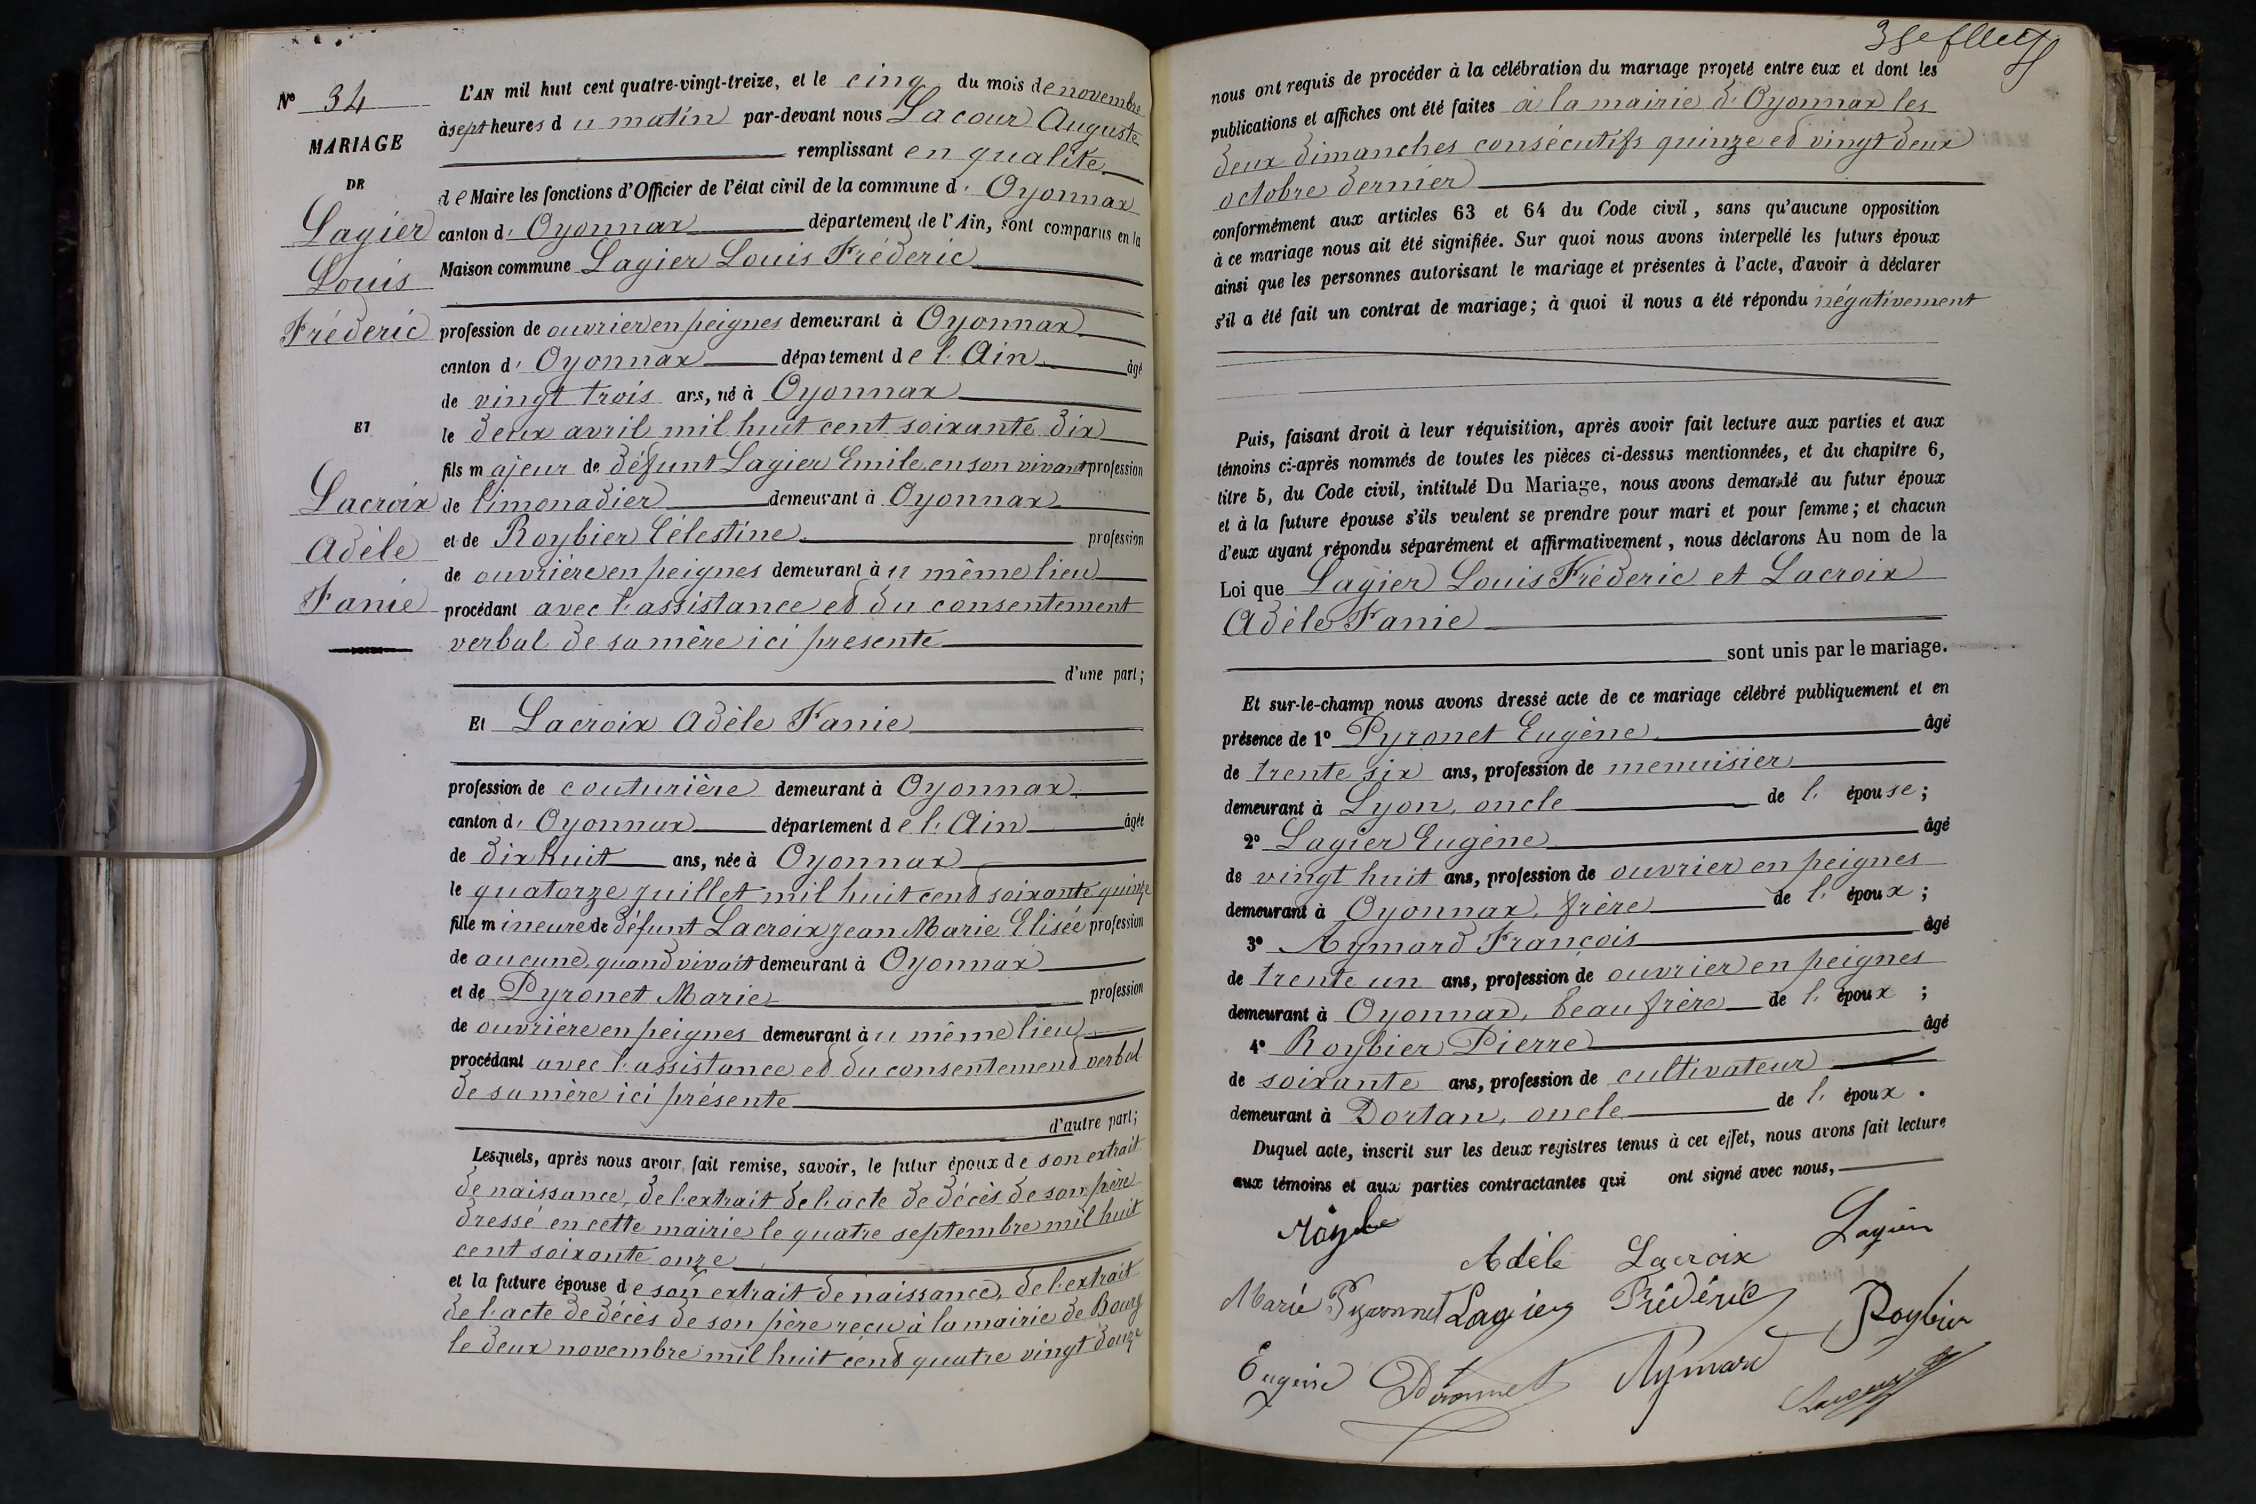 Nº 34
MARIAGE
DE
Lagier
Louis
Fréderic
ET
Lacroix
Adèle
Fanie
L'AN mil huit cent quatre-vingt-treize, et le cinq du mois de novembre
à sept heures du matin par-devant nous Lacour Auguste
remplissant en qualité
de Maire les fonctions d'Officier de l'état civil de la commune d' Oyonnax
canton d' Oyonnax département de l'Ain, sont comparus en la
Maison commune Lagier Louis Fréderic
profession de ouvrier en peignes demeurant à Oyonnax
canton d' Oyonnax département de l'Ain âgé
de vingt trois ans, né à Oyonnax
le deux avril mil huit cent soixante dix
fils majeur de défunt Lagier Emile en son vivant profession
de limonadier demeurant à Oyonnax
et de Roybier Célestine profession
de ouvrière en peignes demeurant à u même lieu
procédant avec l'assistance et du consentement
verbal de sa mère ici presente
d'une part;
Et Lacroix Adèle Fanie
profession de couturière demeurant à Oyonnax
canton d' Oyonnax département de l'Ain âgée
de dix huit ans, née à Oyonnax
le quatorze juillet mil huit cent soixante quinze
fille mineure de défunt Lacroix Jean Marie Elisée profession
de aucune, quand vivait demeurant à Oyonnax
et de Pyronet Marie profession
de ouvrière en peignes demeurant à u même lieu
procédant avec l'assistance et du consentement verbal
de sa mère ici présente
d'autre part;
Lesquels, après nous avoir fait remise, savoir, le futur époux de son extrait
de naissance, de l'extrait de l'acte de décès de son père
dressé en cette mairie le quatre septembre mil huit
cent soixante onze
et la future épouse de son extrait de naissance, de l'extrait
de l'acte de décès de son père reçu à la mairie de Bourg
le deux novembre mil huit cent quatre vingt douze
nous ont requis de procéder à la célébration du mariage projeté entre eux et dont les
publications et affiches ont été faites à la mairie d'Oyonnax les
deux dimanches consécutifs quinze et vingt deux
octobre dernier
conformément aux articles 63 et 64 du Code civil, sans qu'aucune opposition
à ce mariage nous ait été signifiée. Sur quoi nous avons interpellé les futurs époux
ainsi que les personnes autorisant le mariage et présentes à l'acte, d'avoir à déclarer
s'il a été fait un contrat de mariage; à quoi il nous a été répondu négativement
Puis, faisant droit à leur réquisition, après avoir fait lecture aux parties et aux
témoins ci-après nommés de toutes les pièces ci-dessus mentionnées, et du chapitre 6,
titre 5, du Code civil, intitulé Du Mariage, nous avons demandé au futur époux
et à la future épouse s'ils veulent se prendre pour mari et pour femme; et chacun
d'eux ayant répondu séparément et affirmativement, nous déclarons Au nom de la
Loi que Lagier Louis Fréderic et Lacroix
Adèle Fanie
sont unis par le mariage.
Et sur-le-champ nous avons dressé acte de ce mariage célébré publiquement et en
présence de 1º Pyronet Eugène âgé
de trente six ans, profession de menuisier
demeurant à Lyon, oncle de l' épouse;
2º Lagier Eugène âgé
de vingt huit ans, profession de ouvrier en peignes
demeurant à Oyonnax, frère de l' époux;
3º Aymard François âgé
de trente un ans, profession de ouvrier en peignes
demeurant à Oyonnax, beau frère de l' époux;
4º Roybier Pierre âgé
de soixante ans, profession de cultivateur
demeurant à Dortan, oncle de l' époux.
Duquel acte, inscrit sur les deux registres tenus à cet effet, nous avons fait lecture
aux témoins et aux parties contractantes qui ont signé avec nous,
Adèle Lacroix Lagier
Marie Lagier Frédéric Roybier
Eugène Aymard